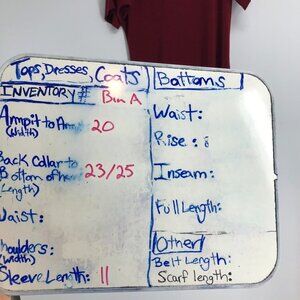 Tops, Dresses, Coats
INVENTORY# Bin A
Armpit to Arm 20
(width)
Back Collar to 23/25
Bottom of hem
(Length)
Waist:
Shoulders:
(width)
Sleeve Length: 11
Bottoms
Waist:
Rise:
Inseam:
Full Length:
Other
Belt Length:
Scarf length: